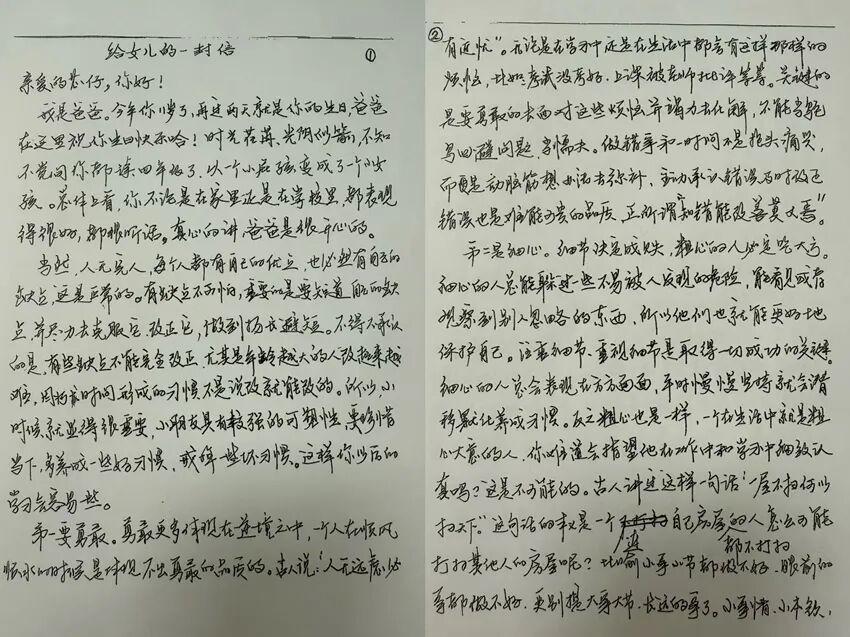 给女儿的一封信
①
亲爱的芯仔,你好!
我是爸爸。今年你10岁了,再过两天就是你的生日,爸爸
在这里祝你生日快乐哈!时光荏苒,光阴似箭,不知
不觉间你都读四年级了,从一个小屁孩变成了个少女
孩。总体上看,你不论是在家里还是在学校里,都表现
得很好,都很听话。真心的讲,爸爸是很开心的。
当然,人无完人,每个人都有自己的优点,也必然有自己的
缺点,这是正常的。有缺点不可怕,重要的是要知道自己的缺
点并尽力去克服它、改正它,做到扬长避短。不得不承认
的是,有些缺点不能完全改正,尤其是年龄越大的人改起来越
难,因为长时间形成的习惯不是说改就能改的。所以,小
时候就显得很重要,小朋友具有较强的可塑性,要珍惜
当下,多养成一些好习惯,戒掉一些坏习惯。这样你以后的
学习会容易些。
第一要勇敢。勇敢更多体现在逆境之中,一个人在顺风
顺水的时候是体现不出勇敢的品质的。古人说:“人无远虑必
②
有近忧”。无论是在学习中还是在生活中都会有这样那样的
烦恼,比如考试没考好、上课被老师批评等等。关键的
是要勇敢的去面对这些烦恼并努力去化解,不能当鸵
鸟回避问题,当懦夫。做错事第一时间不是抱头痛哭,
而是动脑筋想办法去弥补,主动承认错误及时改正
错误也是难能可贵的品质,正所谓“知错能改善莫大焉”
第二是细心。细节决定成败,粗心的人必定吃大亏。
细心的人总能躲过一些不易被人发现的危险,能看见或者
观察到别人忽略的东西,所以他们也就能更好地
保护自己。注重细节、重视细节是取得一切成功的关键。
细心的人总会表现在方方面面,平时慢慢坚持就会潜
移默化养成习惯。反之粗心也是一样,一个在生活中就是粗
心大意的人,你难道会指望他在工作中和学习中细致认
真吗?这是不可能的。古人讲过这样一句话:“一屋不扫何以
扫天下。”这句话的本义是一个连自己房屋都不打扫的人怎么可能
打扫其他人的房屋呢?比喻小事小节都做不好、眼前的
事都做不好,更别提大事大节、长远的事了。小事情、小本钱,